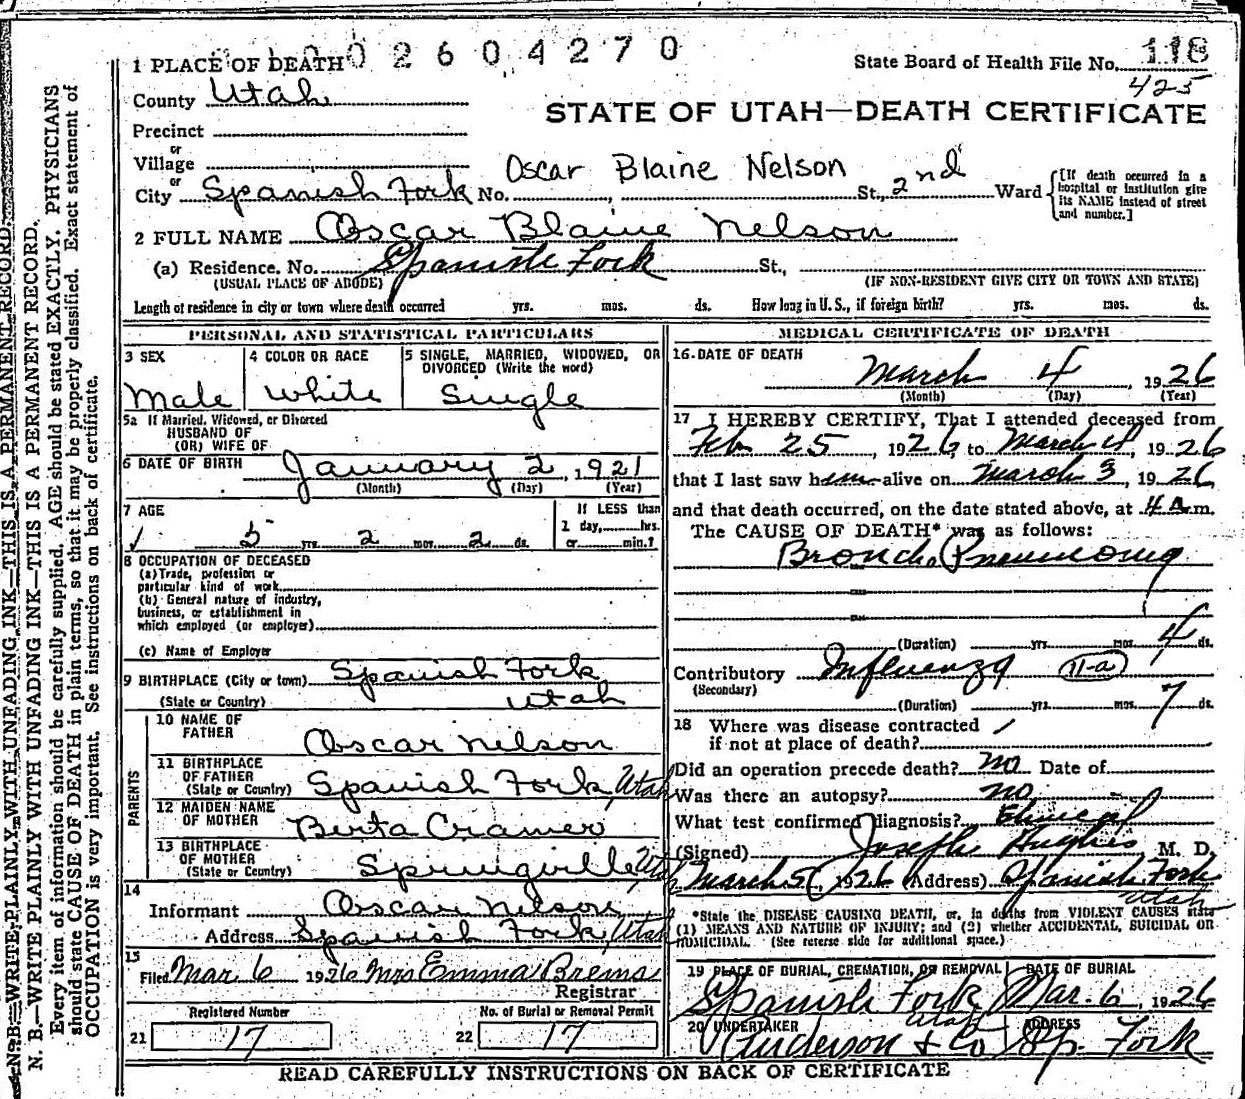 002604270
1 PLACE OF DEATH
State Board of Health File No. 118
425
County Utah
STATE OF UTAH—DEATH CERTIFICATE
Precinct
or
Village
Oscar Blaine Nelson
or
City Spanish Fork No. , St., 2nd Ward
[If death occurred in a hospital or institution give its NAME instead of street and number.]
2 FULL NAME Oscar Blaine Nelson
(a) Residence. No. Spanish Fork St.,
(USUAL PLACE OF ABODE) (IF NON-RESIDENT GIVE CITY OR TOWN AND STATE)
Length of residence in city or town where death occurred yrs. mos. ds. How long in U. S., if foreign birth? yrs. mos. ds.
PERSONAL AND STATISTICAL PARTICULARS
3 SEX
Male
4 COLOR OR RACE
White
5 SINGLE, MARRIED, WIDOWED, OR
DIVORCED (Write the word)
Single
5a If Married, Widowed, or Divorced
HUSBAND OF
(OR) WIFE OF
6 DATE OF BIRTH January 2, 1921
(Month) (Day) (Year)
7 AGE
5 yrs. 2 mos. 2 ds.
If LESS than
1 day, hrs.
or min.?
8 OCCUPATION OF DECEASED
(a) Trade, profession or
particular kind of work
(b) General nature of industry,
business, or establishment in
which employed (or employer)
(c) Name of Employer
9 BIRTHPLACE (City or town) Spanish Fork
(State or Country) Utah
PARENTS
10 NAME OF
FATHER Oscar Nelson
11 BIRTHPLACE
OF FATHER
(State or Country) Spanish Fork, Utah
12 MAIDEN NAME
OF MOTHER Berta Cramer
13 BIRTHPLACE
OF MOTHER
(State or Country) Springville Utah
14
Informant Oscar Nelson
Address Spanish Fork, Utah
15
Filed Mar 6 1926 Mrs Emma Brems
Registrar
Registered Number
21 17
No. of Burial or Removal Permit
22 17
MEDICAL CERTIFICATE OF DEATH
16 DATE OF DEATH
March 4, 1926
(Month) (Day) (Year)
17 I HEREBY CERTIFY, That I attended deceased from
Feb 25, 1926 to March 4, 1926
that I last saw him alive on March 3, 1926
and that death occurred, on the date stated above, at 4 A.m.
The CAUSE OF DEATH* was as follows:
Broncho Pneumonia
(Duration) yrs. mos. 4 ds.
Contributory Influenza 11-a
(Secondary)
(Duration) yrs. mos. 7 ds.
18 Where was disease contracted
if not at place of death?
Did an operation precede death? no Date of
Was there an autopsy? no
What test confirmed diagnosis? Clinical
(Signed) Joseph Hughes M. D.
March 5, 1926 (Address) Spanish Fork
Utah
*State the DISEASE CAUSING DEATH, or, in deaths from VIOLENT CAUSES state
(1) MEANS AND NATURE OF INJURY; and (2) whether ACCIDENTAL, SUICIDAL OR
HOMICIDAL. (See reverse side for additional space.)
19 PLACE OF BURIAL, CREMATION, OR REMOVAL
Spanish Fork
Utah
DATE OF BURIAL
Mar. 6, 1926
20 UNDERTAKER
Anderson & Co
ADDRESS
Sp. Fork
READ CAREFULLY INSTRUCTIONS ON BACK OF CERTIFICATE
N. B.—WRITE PLAINLY WITH UNFADING INK—THIS IS A PERMANENT RECORD.
N. B.—WRITE PLAINLY WITH UNFADING INK—THIS IS A PERMANENT RECORD.
Every item of information should be carefully supplied. AGE should be stated EXACTLY. PHYSICIANS
should state CAUSE OF DEATH in plain terms, so that it may be properly classified. Exact statement of
OCCUPATION is very important. See instructions on back of certificate.